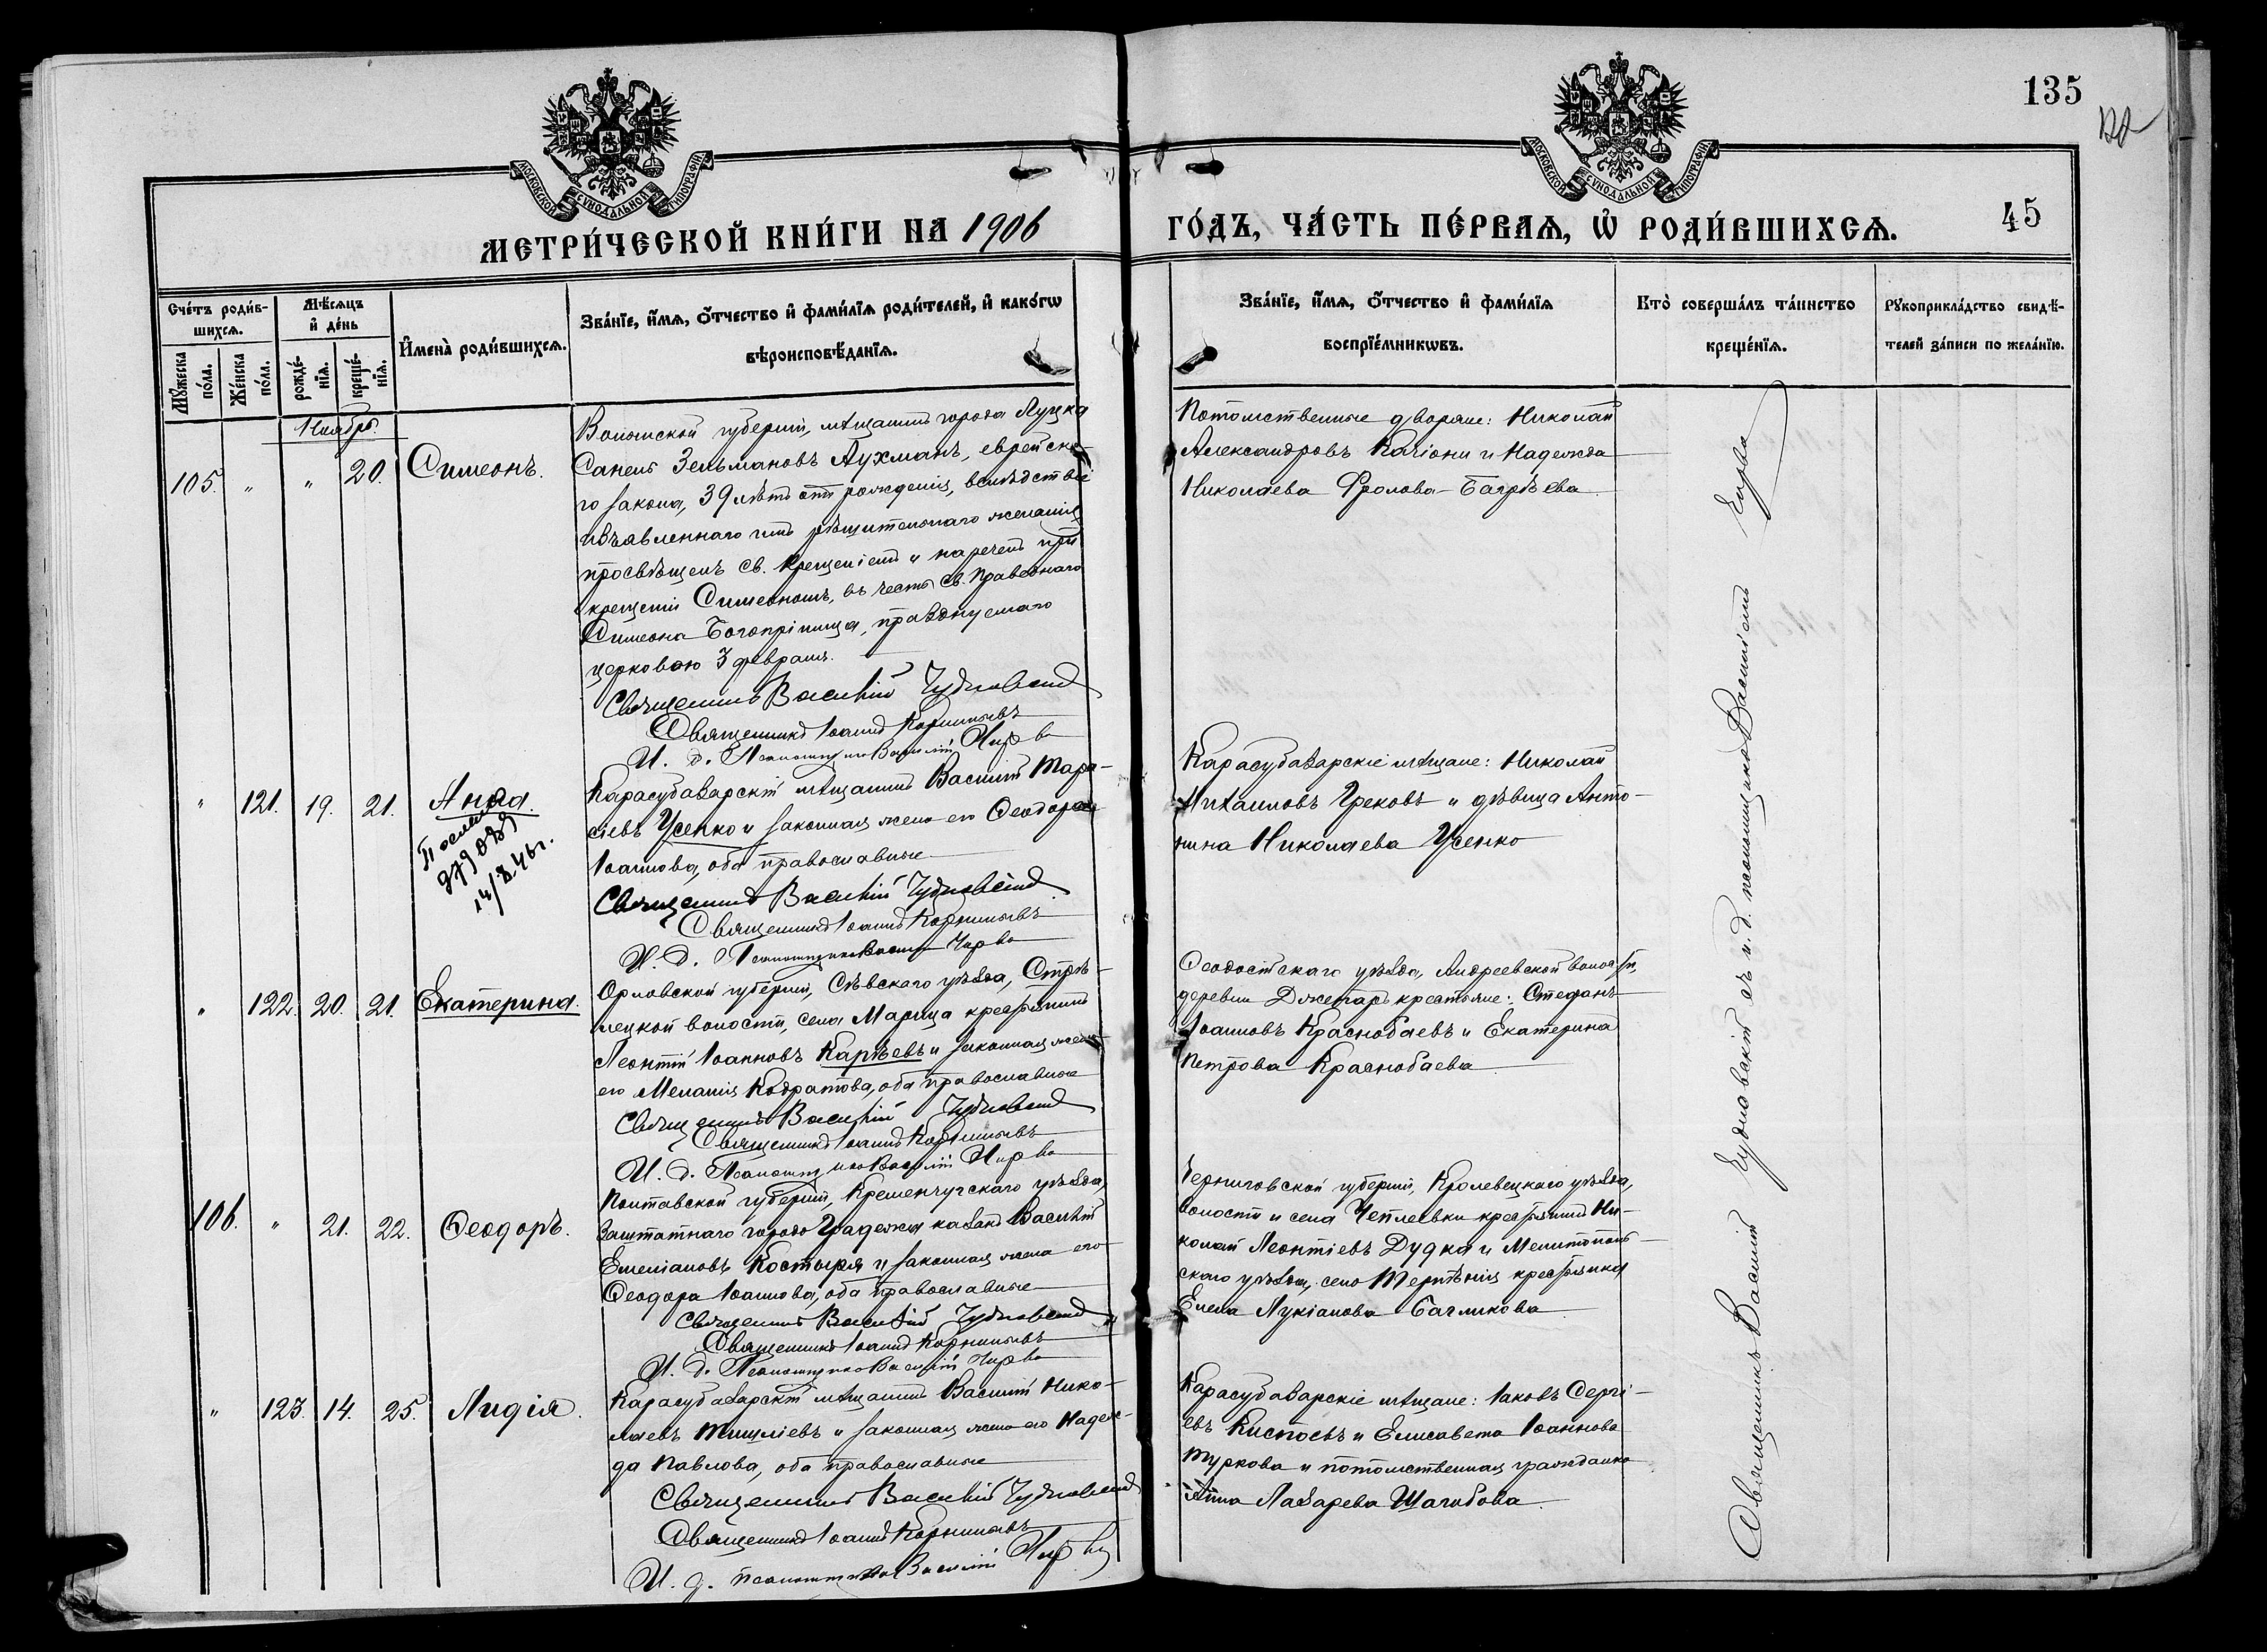 135
45
МОСКОВСКОЙ СѴНОДАЛЬНОЙ ТИПОГРАФІИ
МОСКОВСКОЙ СѴНОДАЛЬНОЙ ТИПОГРАФІИ
МЕТРИ́ЧЕСКОЙ КНИ́ГИ НА 1906
ГО́ДЪ, ЧА́СТЬ ПЕ́РВАѦ, Ѡ҆ РОДИ́ВШИХСѦ.
Сче́тъ роди́в-
шихсѧ.
Мꙋ́жеска по́ла.
Же́нска по́ла.
Мѣ́сѧцъ
и҆ де́нь
рожде́-
нїѧ.
креще́-
нїѧ.
И҆мена̀ роди́вшихсѧ.
Зва́нїе, и҆́мѧ, ѻ҆́тчество и҆ фами́лїѧ роди́телей, и҆ како́гѡ
вѣроисповѣ́данїѧ.
Зва́нїе, и҆́мѧ, ѻ҆́тчество и҆ фами́лїѧ
воспрїе́мникѡвъ.
Кто̀ соверша́лъ та́инство
креще́нїѧ.
Рꙋкоприкла́дство свидѣ́-
телей за́писи по жела́нїю.
Ноябрь.
105. " " 20. Симеонъ.
Волынской губерніи, мѣщанинъ города Луцка
Санель Зельмановъ Лухманъ, еврейска-
го закона, 39 лѣтъ отъ рожденія, вслѣдствіе
изъявленнаго имъ рѣшительнаго желанія
просвѣщенъ св. крещеніемъ и нареченъ при
крещеніи Симеономъ, въ честь св. праведнаго
Симеона Богопріимца, празднуемаго
церковью 3 февраля.
Священникъ Василій Чудновскій
Священникъ Іоаннъ
И. д. Псаломщика Василій Чирва
Потомственные дворяне: Николай
Александровъ Качіони и Надежда
Николаева Фролова-Багрѣева.
" 121. 19. 21. Анна.
14/8.46г.
Карасубазарскій мѣщанинъ Василій Тара-
сіевъ Усенко и законная жена его Ѳеодора
Іоаннова, оба православные
Священникъ Василій Чудновскій
Священникъ Іоаннъ
И. д. Псаломщика Василій Чирва
Карасубазарскіе мѣщане: Николай
Михаиловъ Грековъ и дѣвица Анто-
нина Николаева Усенко
" 122. 20. 21. Екатерина.
Орловской губерніи, Сѣвскаго уѣзда, Стрѣ-
лецкой волости, села Марица крестьянинъ
Леонтій Іоанновъ Карѣевъ и законная жена
его Меланія Кодратова, оба православные
Священникъ Василій Чудновскій
Священникъ Іоаннъ
И. д. Псаломщика Василій Чирва
Ѳеодосійскаго уѣзда, Андреевской волости,
деревни Джепаръ крестьяне: Стефанъ
Іоанновъ Краснобаевъ и Екатерина
Петрова Краснобаева
106. " 21. 22. Ѳеодоръ.
Полтавской губерніи, Кременчугскаго уѣзда,
Заштатнаго города Градежска казакъ Василій
Емеліановъ Костыря и законная жена его
Ѳеодора Іоаннова, оба православные
Священникъ Василій Чудновскій
Священникъ Іоаннъ
И. д. Псаломщика Василій Чирва
Черниговской губерніи, Кролевецкаго уѣзда,
волости и села Чеплеевки крестьянинъ Ни-
колай Леонтіевъ Дудка и Мелитополь-
скаго уѣзда, село Терпѣнія крестьянка
Елена Лукіанова Багликова
" 123. 14. 25. Лидія.
Карасубазарскій мѣщанинъ Василій Нико-
лаевъ Тищліевъ и законная жена его Надеж-
да Павлова, оба православные
Священникъ Василій Чудновскій
Священникъ Іоаннъ
И. д. псаломщика Василій Чирва
Карасубазарскіе мѣщане: Іаковъ Сергі-
евъ Киспоевъ и Елисавета Іоаннова
Туркова и потомственная гражданка
Анна Лазарева Шагибова.
Священникъ Василій Чудновскій съ и. д. псаломщика Василіемъ Чирва